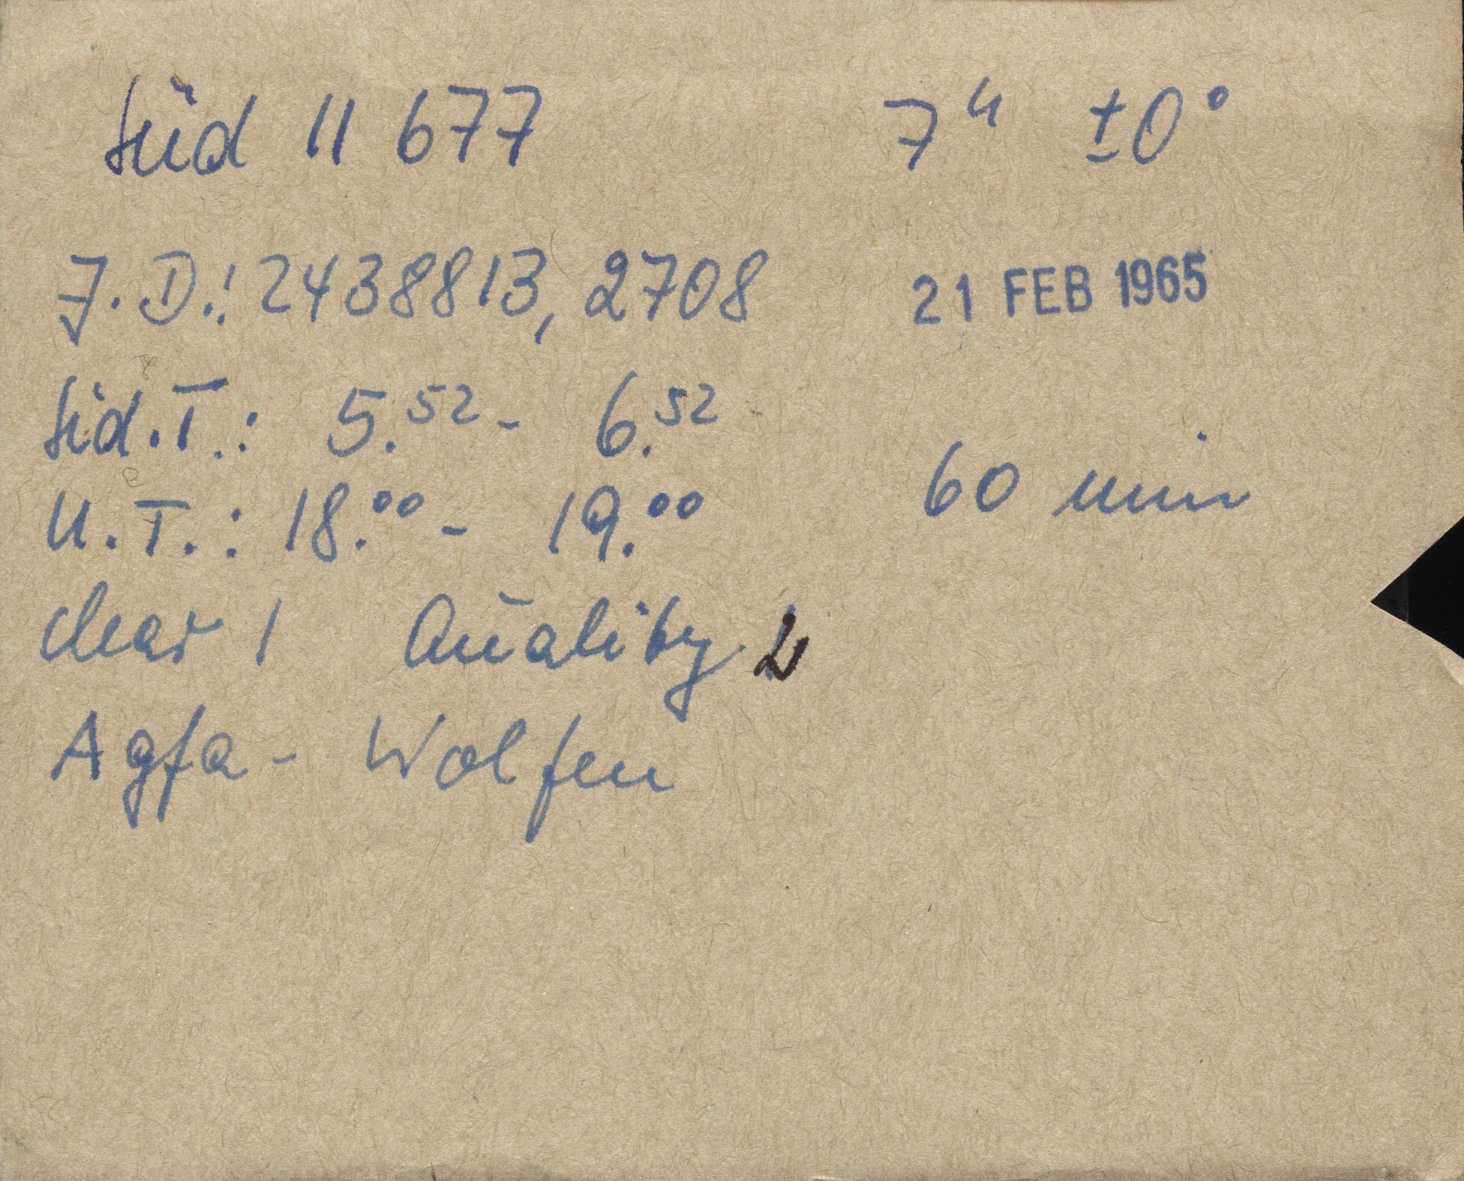 Süd 11 677 7ʰ ±0°
J.D.: 2438813,2708 21 FEB 1965
Sid.T.: 5.⁵² - 6.⁵²
U.T.: 18.⁰⁰ - 19.⁰⁰ 60 min
clear 1 Quality 2
Agfa - Wolfen